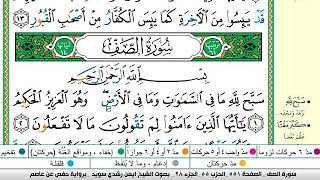 قَدْ يَئِسُوا مِنَ الْآخِرَةِ كَمَا يَئِسَ الْكُفَّارُ مِنْ أَصْحَابِ الْقُبُورِ ١٣
سُورَةُ الصَّفِّ
بِسْمِ اللَّهِ الرَّحْمَٰنِ الرَّحِيمِ
سَبَّحَ لِلَّهِ مَا فِي السَّمَاوَاتِ وَمَا فِي الْأَرْضِ وَهُوَ الْعَزِيزُ الْحَكِيمُ
١ يَا أَيُّهَا الَّذِينَ آمَنُوا لِمَ تَقُولُونَ مَا لَا تَفْعَلُونَ ٢
سَبَّحَ لِلَّهِ
مد ٦ حركات لزوماً
مد ٢ أو ٤ أو ٦ جوازاً
إخفاء، ومواقع الغنة (حركتان)
تفخيم
مد حركتان
إدغام، وما لا يُلفظ
قلقلة
سورة الصف الصفحة ٥٥١ الجزء ٢٨
بصوت الشيخ ايمن رشدي سويد
برواية حفص عن عاصم